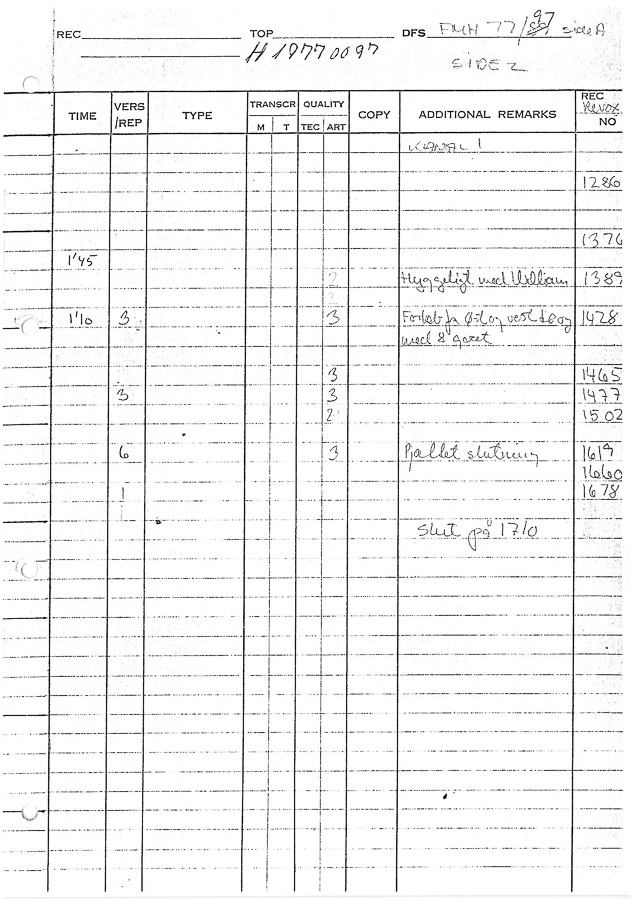 REC TOP DFS FMH 77/97 side A
H 19770097
SIDE 2
TIME VERS /REP TYPE TRANSCR M T QUALITY TEC ART COPY ADDITIONAL REMARKS REC Revox NO
KANAL 1
1286
1376
1'45
2 Hyggeligt med William 1389
2
1'10 3 3 og vest 1428
med 8
3 1465
3 3 1477
2 1502
6 3 Pjallet slutning 1619
1660
1 1678
Slut på 1710